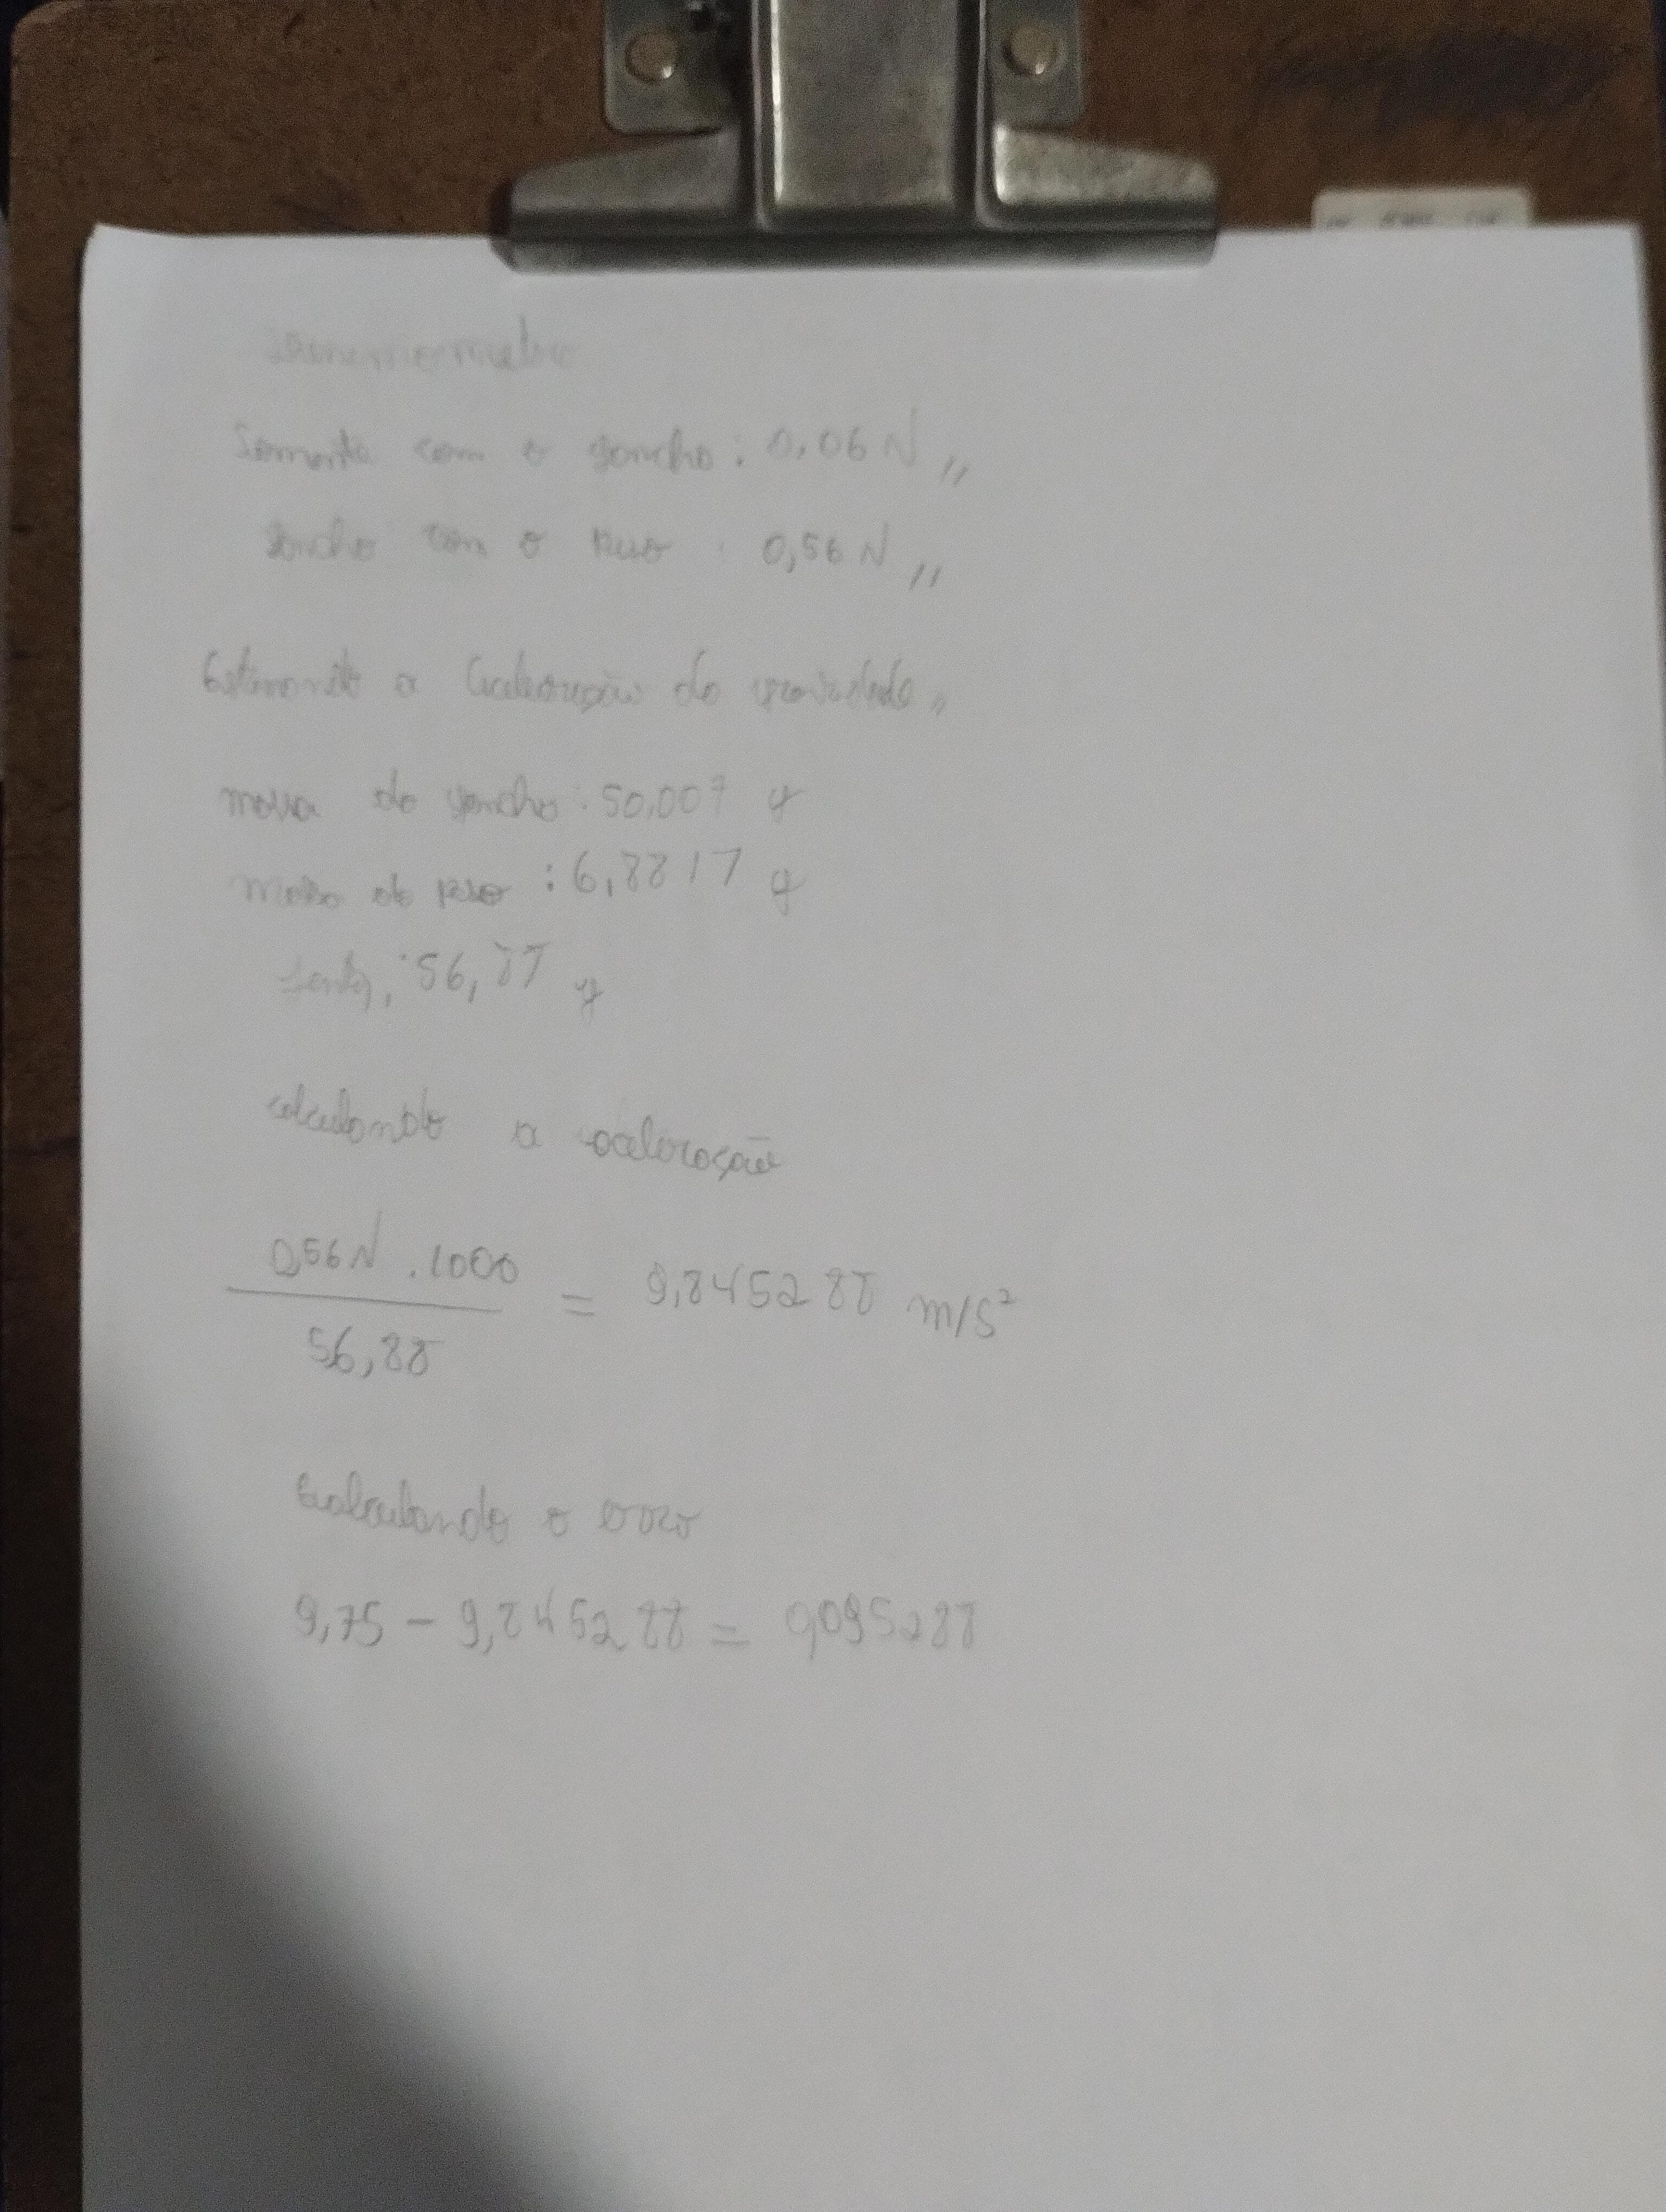 Somente com o gancho: 0,06 N,,
gancho com o peso : 0,56 N,,
Estimando a aceleração da gravidade,,
massa do gancho: 50,007 g
massa do peso : 6,8817 g
56,88 g
calculando a aceleração
0,56 N . 1000
= 9,8452 88 m/s²
56,88
Calculando o erro
9,75 - 9,8452 88 = 0,095288